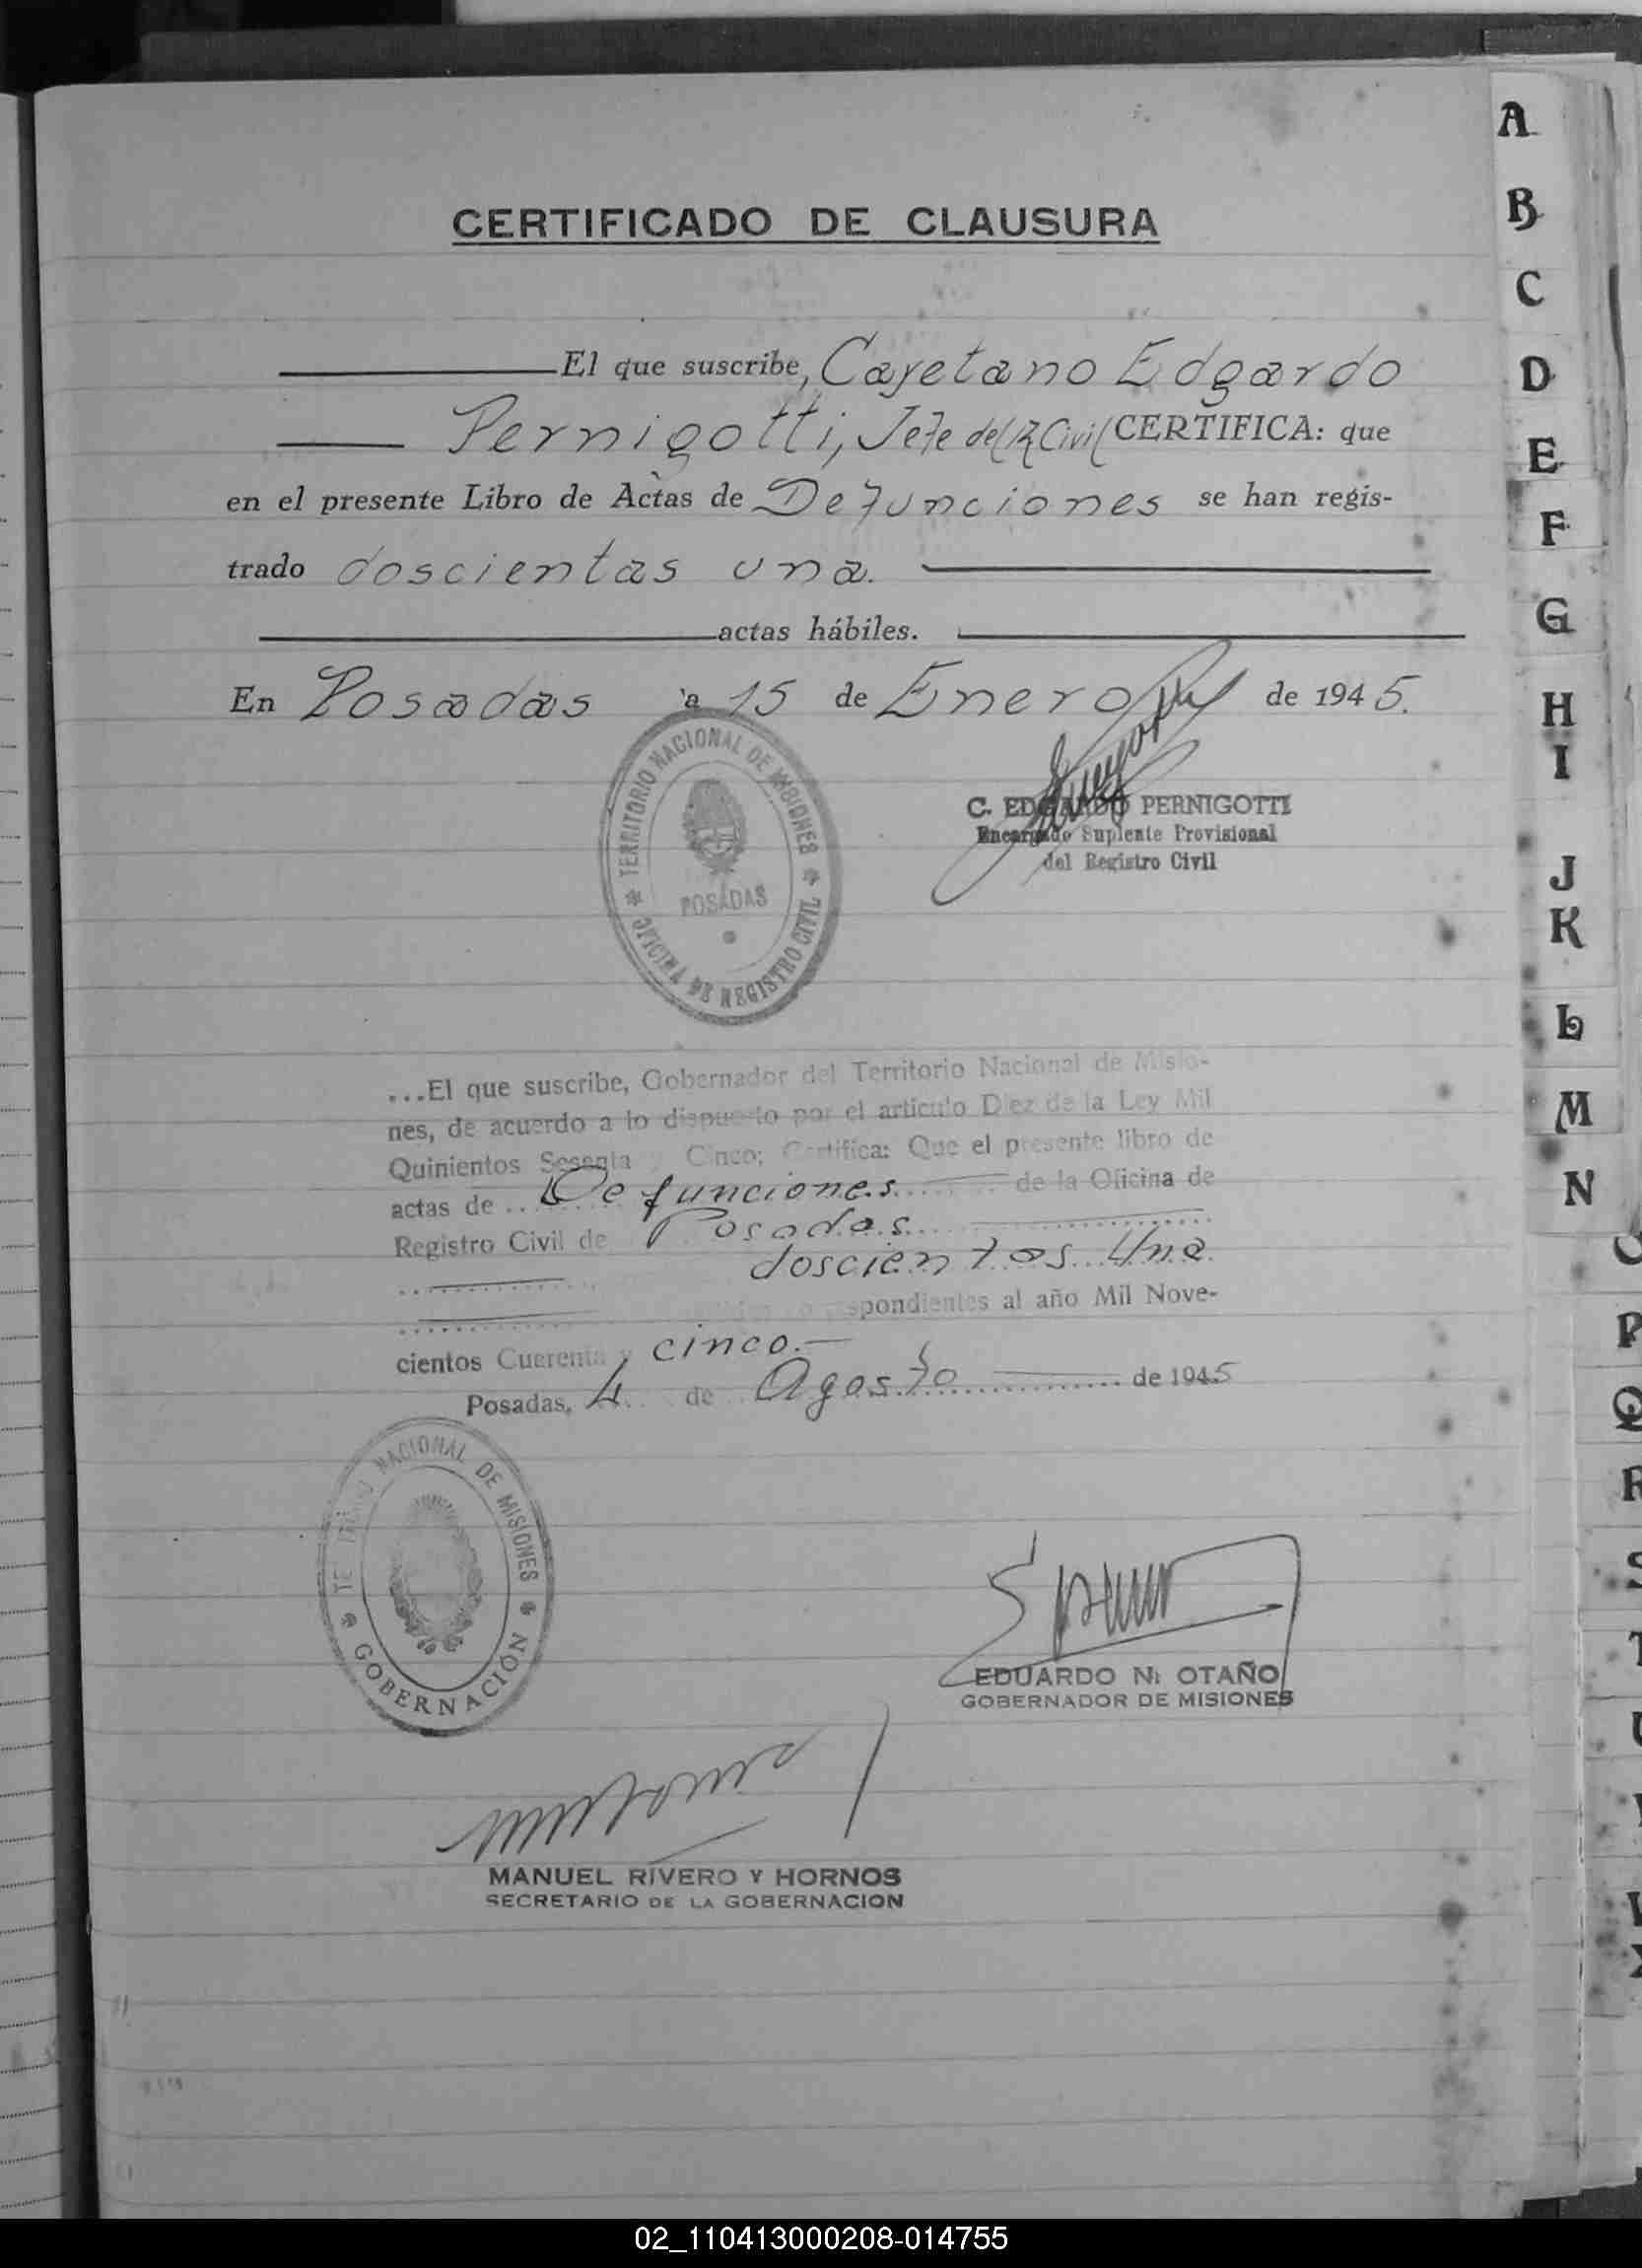 CERTIFICADO DE CLAUSURA
El que suscribe, Cayetano Edgardo
Pernigotti, Jefe del R. Civil CERTIFICA: que
en el presente Libro de Actas de Defunciones se han regis-
trado doscientas una.
actas hábiles.
En Posadas a 15 de Enero de 1945.
C. EDGARDO PERNIGOTTI
Encargado Suplente Provisional
del Registro Civil
TERRITORIO NACIONAL DE MISIONES
POSADAS
OFICINA DE REGISTRO CIVIL
...El que suscribe, Gobernador del Territorio Nacional de Misio-
nes, de acuerdo a lo dispuesto por el artículo Diez de la Ley Mil
Quinientos Sesenta y Cinco; Certifica: Que el presente libro de
actas de Defunciones de la Oficina de
Registro Civil de Posadas
doscientos Una
spondientes al año Mil Nove-
cientos Cuarenta y cinco.-
Posadas, 4 de Agosto de 1945
TERRITORIO NACIONAL DE MISIONES
GOBERNACIÓN
EDUARDO N. OTAÑO
GOBERNADOR DE MISIONES
MANUEL RIVERO Y HORNOS
SECRETARIO DE LA GOBERNACION
A
B
C
D
E
F
G
H
I
J
K
L
M
N
O
P
Q
R
S
T
U
02_110413000208-014755